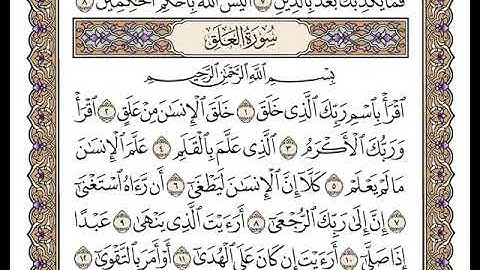 فَمَا يُكَذِّبُكَ بَعْدُ بِالدِّينِ ٧ أَلَيْسَ اللَّهُ بِأَحْكَمِ الْحَاكِمِينَ ٨
سُورَةُ الْعَلَقِ
بِسْمِ اللَّهِ الرَّحْمَٰنِ الرَّحِيمِ
اقْرَأْ بِاسْمِ رَبِّكَ الَّذِي خَلَقَ ١ خَلَقَ الْإِنسَٰنَ مِنْ عَلَقٍ ٢ اقْرَأْ
وَرَبُّكَ الْأَكْرَمُ ٣ الَّذِي عَلَّمَ بِالْقَلَمِ ٤ عَلَّمَ الْإِنسَٰنَ
مَا لَمْ يَعْلَمْ ٥ كَلَّا إِنَّ الْإِنسَٰنَ لَيَطْغَىٰ ٦ أَن رَّءَاهُ اسْتَغْنَىٰ
٧ إِنَّ إِلَىٰ رَبِّكَ الرُّجْعَىٰ ٨ أَرَءَيْتَ الَّذِي يَنْهَىٰ ٩ عَبْدًا
إِذَا صَلَّىٰ ١٠ أَرَءَيْتَ إِن كَانَ عَلَى الْهُدَىٰ ١١ أَوْ أَمَرَ بِالتَّقْوَىٰ ١٢